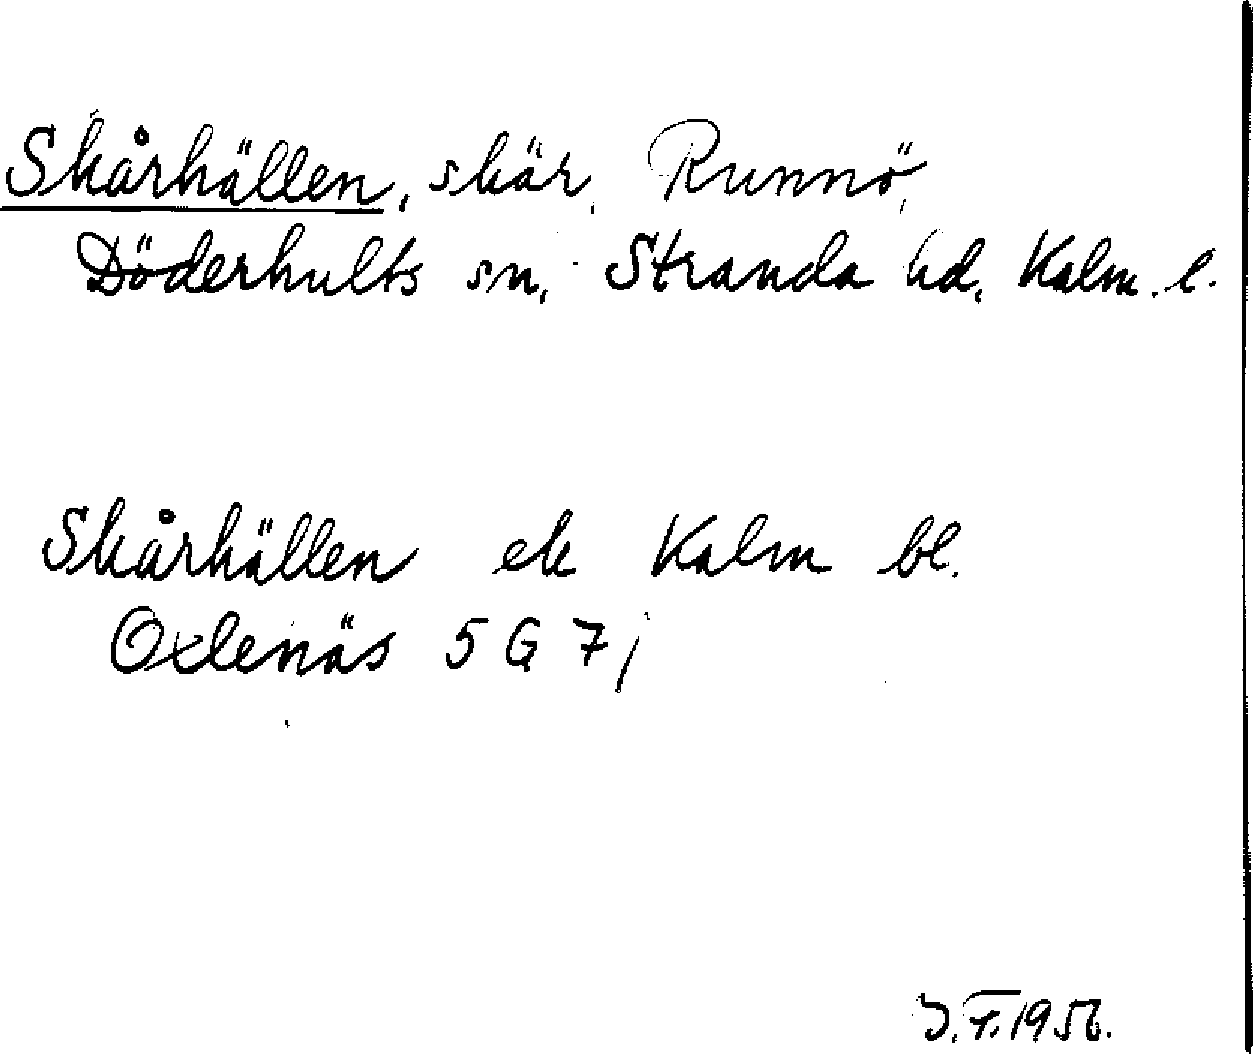 Skårhällen, skär, Runnö,
Döderhults sn, Stranda hd, Kalm. l.
Skårhällen ek Kalm bl.
Oxlenäs 5 G 7 j
J.F. 1956.